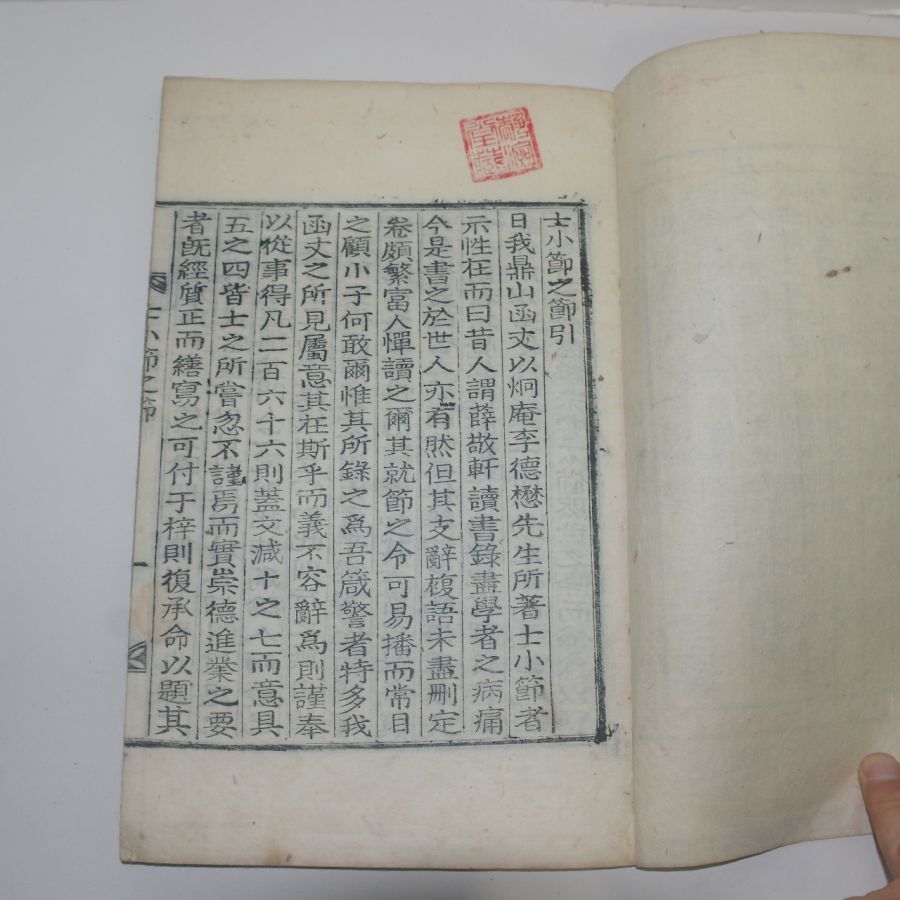 士小節之節引
日我鼎山函丈以炯庵李德懋先生所著士小節者
示性在而曰昔人謂薛敬軒讀書錄盡學者之病痛
今是書之於世人亦有然但其支辭複語未盡刪定
卷頗繁富人憚讀之爾其就節之令可易播而常目
之顧小子何敢爾惟其所錄之爲吾箴警者特多我
函丈之所見屬意其在斯乎而義不容辭爲則謹奉
以從事得凡二百六十六則蓋文減十之七而意具
五之四皆士之所嘗忽不謹焉而實崇德進業之要
者旣經質正而繕寫之可付于梓則復承命以題其
士小節之節
一